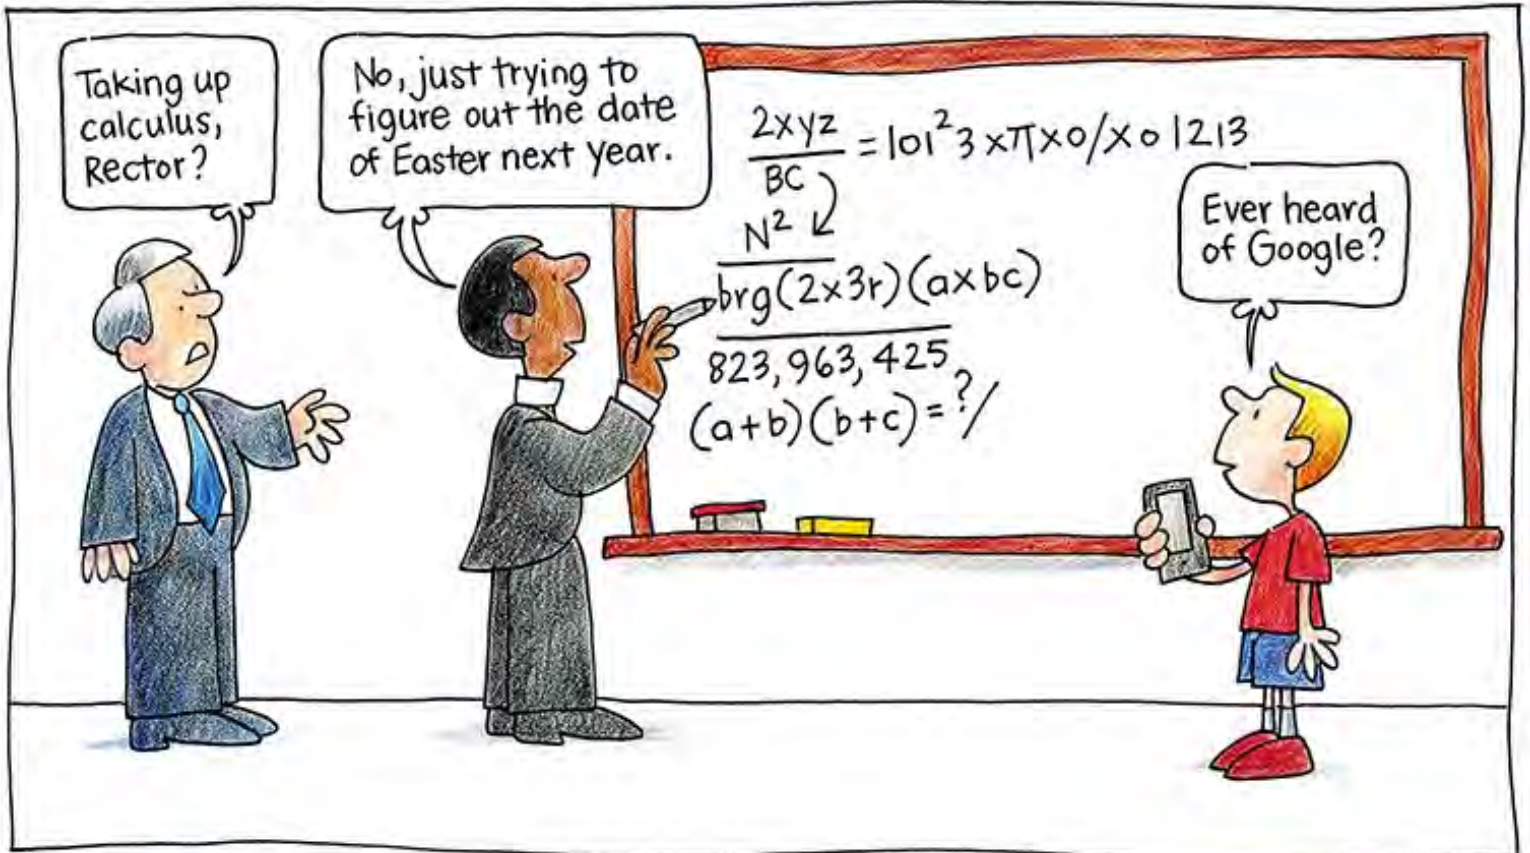 Taking up
calculus,
Rector?
No, just trying to
figure out the date
of Easter next year.
2xyz
BC
= 101²3 xπx0/x01213
N²
brg(2x3r)(axbc)
823,963,425
(a+b)(b+c)=?/
Ever heard
of Google?